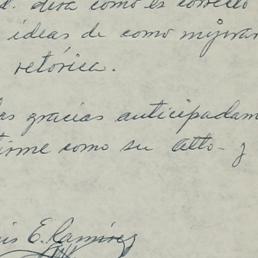 d. dirá como es correcto
ideas de como mejorar
retórica.
as gracias anticipadam
irme como su atto- y
is E. Ramírez